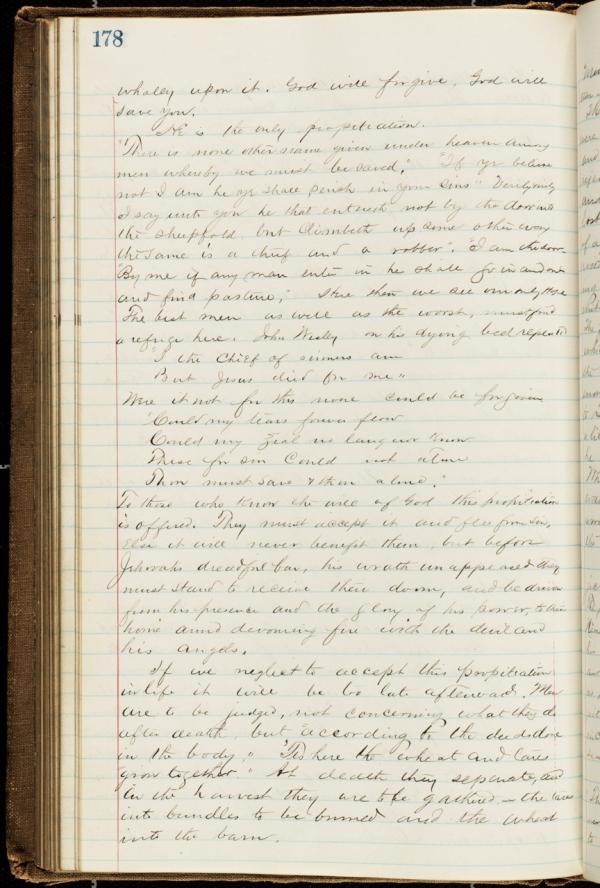 178
whaley upon it. God will forgive, God will
save you.
He is the only propitiation.
"There is none other name given under heaven among
men whereby we must be saved," "If ye believe
not I am he ye shall perish in your sins" Verily verily
I say unto you he that entereth not by the door into
the sheepfold but climbeth up some other way
the same is a thief and a robber". "I am the door
By me if any man enter in he shall go in and out
and find pasture," Here then we see our only hope
The best men as well as the worst, must find
a refuge here. John Wesley on his dying bed repeated
"I the Chief of sinners am
But Jesus died for me"
Were it not for this none could be forgiven
"Could my tears forever flow
Could my Zeal no languor know
These for sin Could not atone
Thou must save & thou alone."
To those who know the will of God this propitiation
is offered. They must accept it and flee from sin,
Else it will never benefit them, but before
Jehovahs dreadful bar, his wrath unappeased they
must stand to receive their doom, and be driven
from his presence and the glory of his power, to their
home amid devouring fire with the devil and
his angels.
If we neglect to accept this propitiation
in life it will be too late afterward. Men
are to be judged, not concerning what they do
after death, but "according to the deeds done
in the body." "Tis here the wheat and tares
grow together" At death they separate, and
in the harvest they are to be gathered – the tares
into bundles to be burned and the wheat
into the barn.